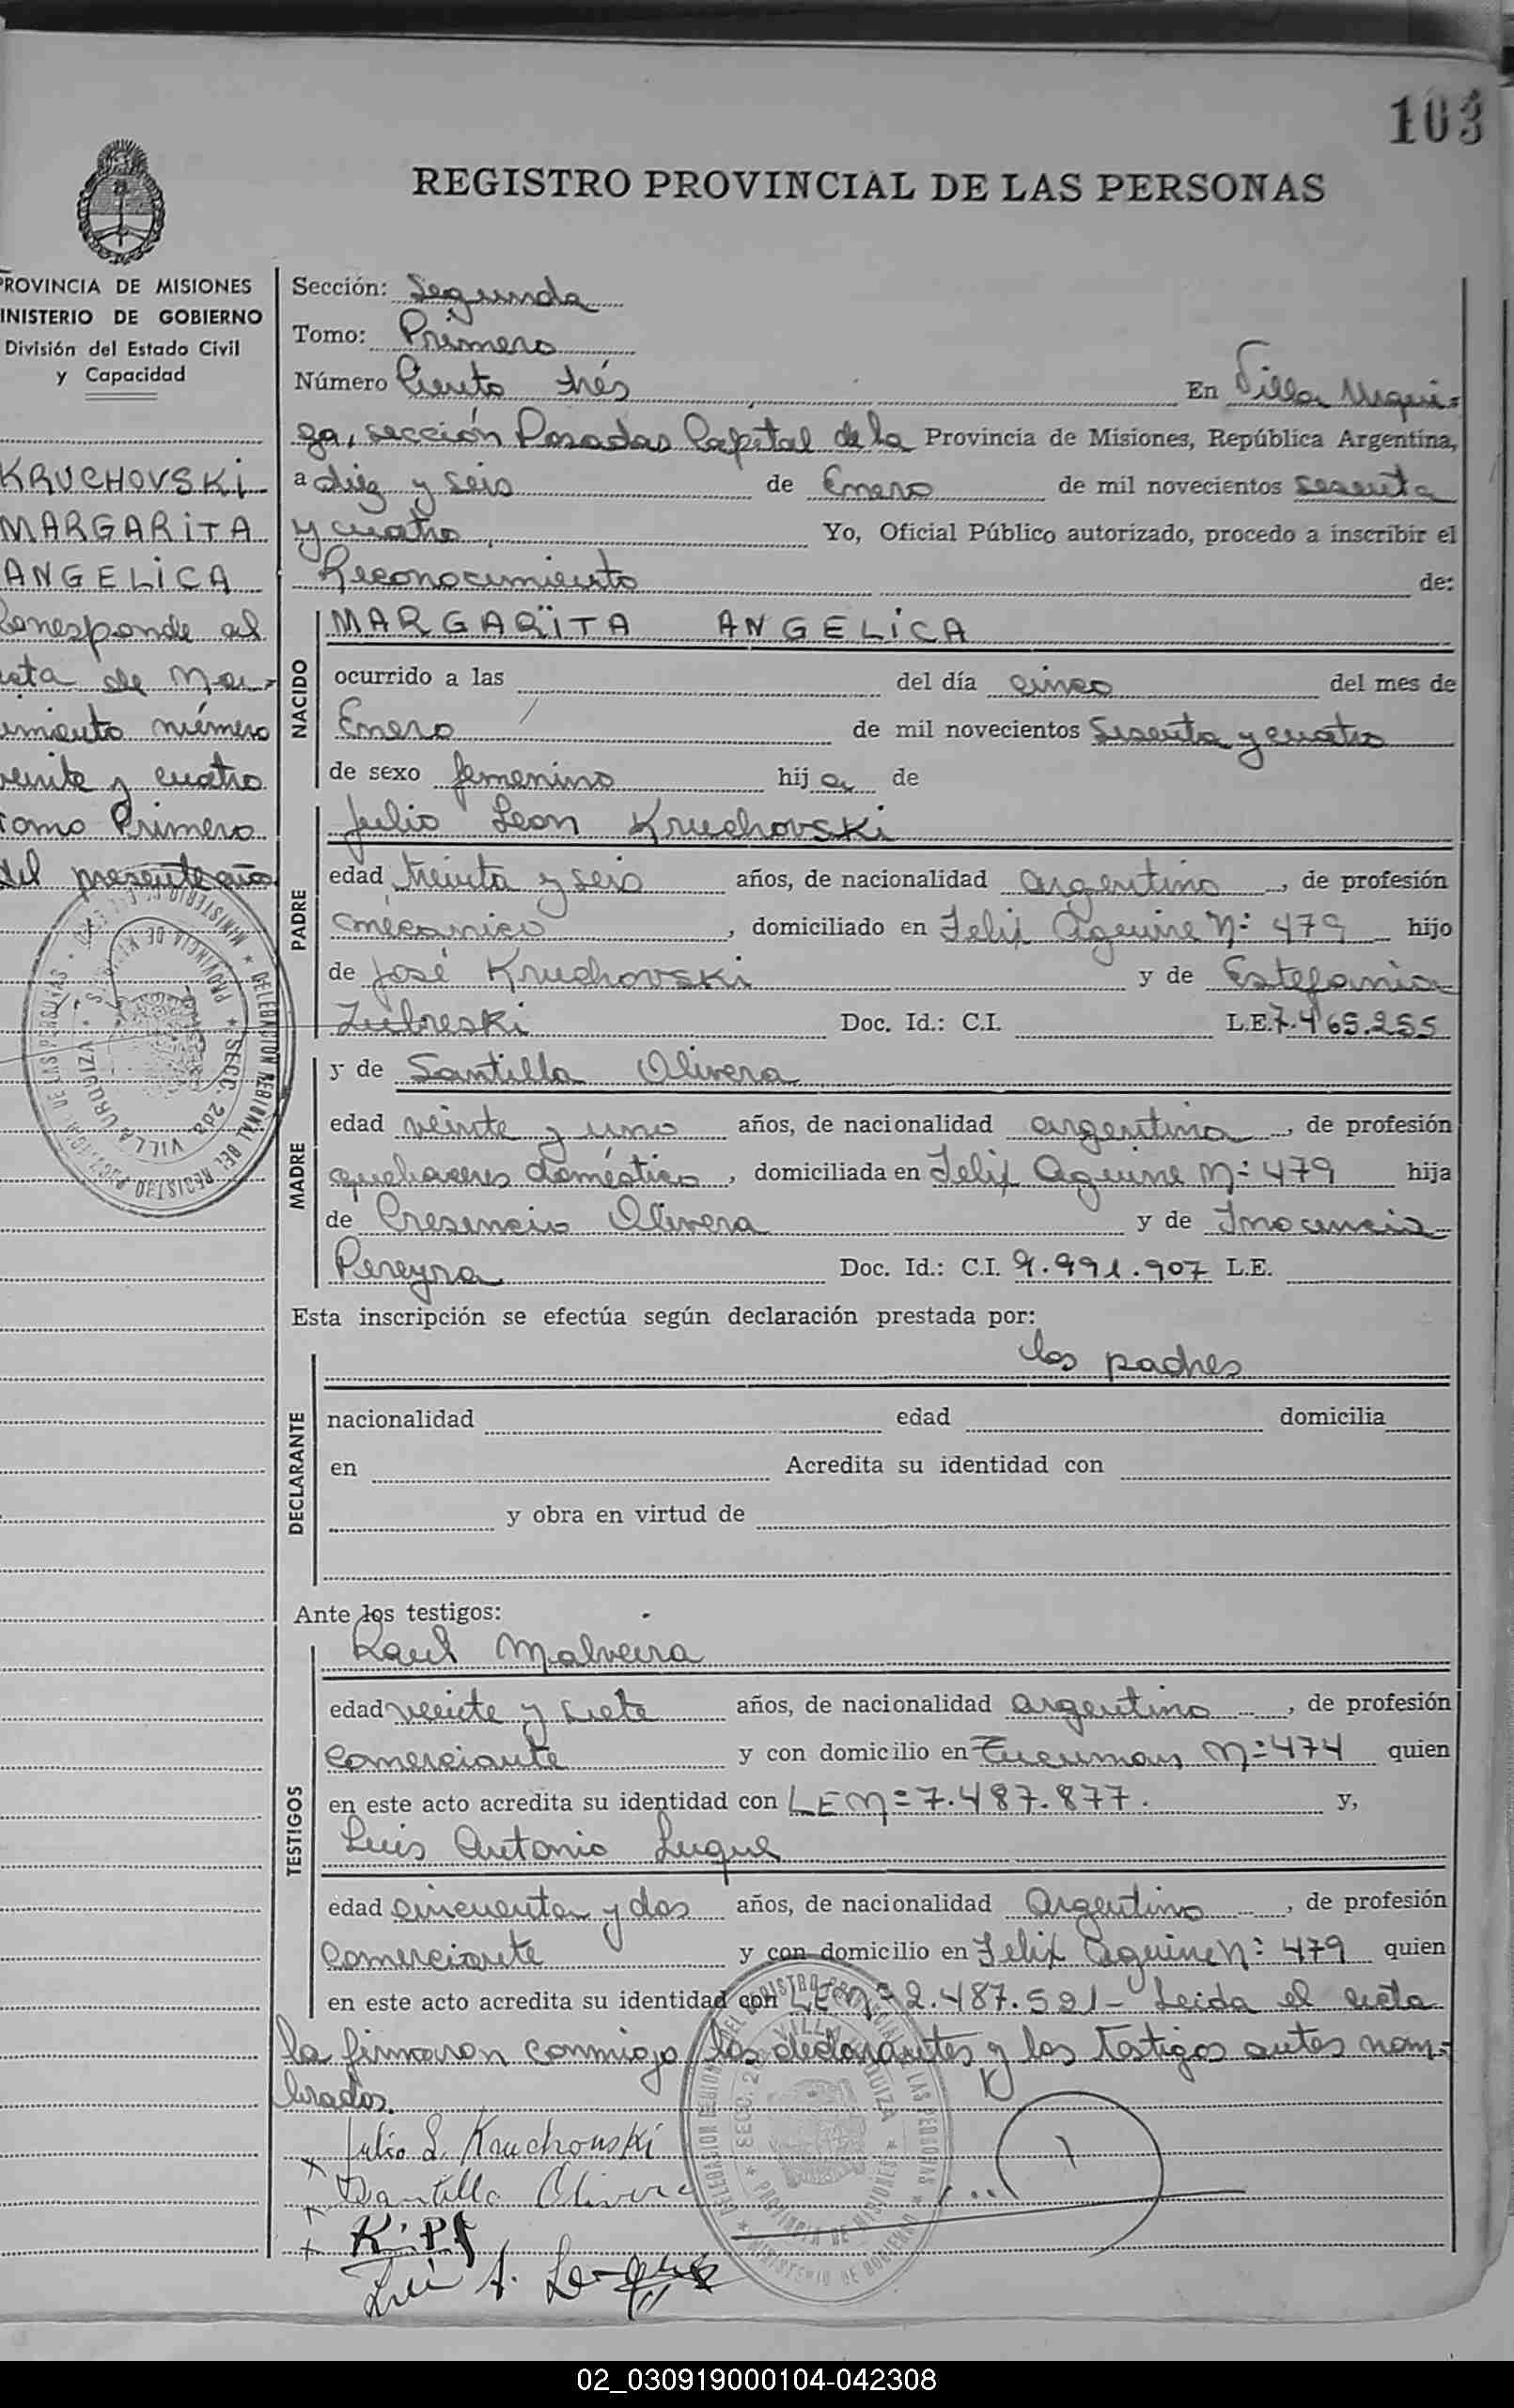 103
REGISTRO PROVINCIAL DE LAS PERSONAS
PROVINCIA DE MISIONES
MINISTERIO DE GOBIERNO
División del Estado Civil
y Capacidad
KRUCHOVSKI
MARGARITA
ANGELICA
Corresponde al
acta de Na-
cimiento número
veinte y cuatro
Tomo Primero
del presente año
Sección: Segunda
Tomo: Primero
Número Ciento trés
En Villa Urqui-
za, sección Posadas Capital de la Provincia de Misiones, República Argentina,
a diez y seis de Enero de mil novecientos sesenta
y cuatro, Yo, Oficial Público autorizado, procedo a inscribir el
Reconocimiento de:
NACIDO
MARGARITA ANGELICA
ocurrido a las del día cinco del mes de
Enero de mil novecientos Sesenta y cuatro
de sexo femenino hija de
PADRE
Julio Leon Kruchovski
edad treinta y seis años, de nacionalidad argentino, de profesión
mécanico, domiciliado en Felix Aguirre Nº 479 hijo
de José Kruchovski y de Estefania
Zubreski Doc. Id.: C.I. L.E. 7.465.255
MADRE
y de Santilla Olivera
edad veinte y uno años, de nacionalidad argentina, de profesión
quehaceres doméstico, domiciliada en Felix Aguirre Nº 479 hija
de Cresencio Olivera y de Inocencia
Pereyra Doc. Id.: C.I. 9.991.907 L.E.
Esta inscripción se efectúa según declaración prestada por:
los padres
DECLARANTE
nacionalidad edad domicilia
en Acredita su identidad con
y obra en virtud de
Ante los testigos:
TESTIGOS
Raul Malveira
edad veinte y siete años, de nacionalidad argentino, de profesión
comerciante y con domicilio en Tucuman Nº 474 quien
en este acto acredita su identidad con LE Nº 7.487.877. y,
Luis Antonio Luque
edad cincuenta y dos años, de nacionalidad Argentino, de profesión
comerciante y con domicilio en Felix Aguirre Nº 479 quien
en este acto acredita su identidad con LE Nº 2.487.591- Leida el acta
la firmaron conmigo los declarantes y los testigos antes nom-
brados.
Julio L. Kruchowski
Santilla Olivera
Luis A. Luque
DELEGACION REGIONAL DEL REGISTRO PROVINCIAL DE LAS PERSONAS
SECC. 2da. VILLA URQUIZA
PROVINCIA DE MISIONES
MINISTERIO DE GOBIERNO
02_030919000104-042308